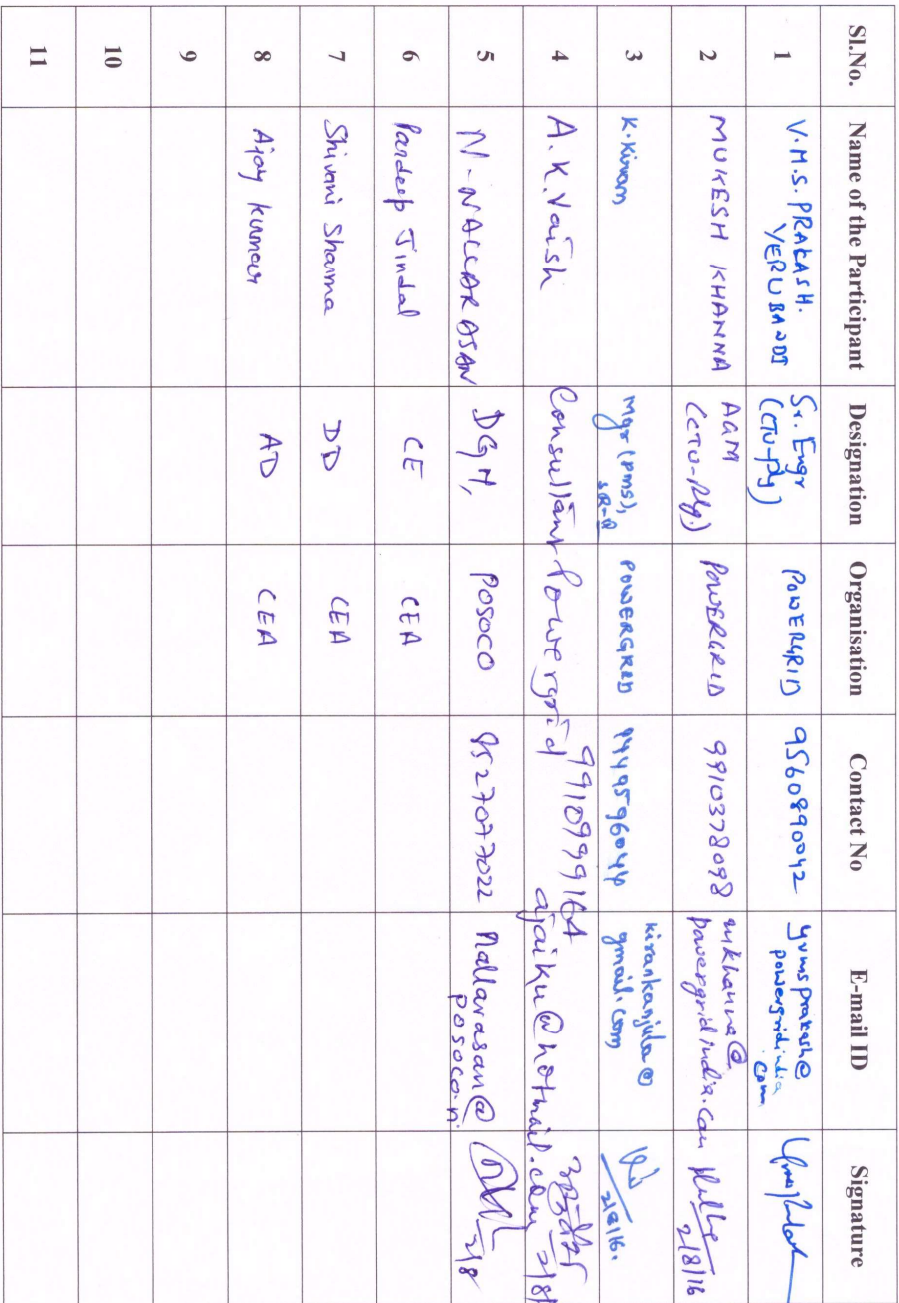 Sl.No. Name of the Participant Designation Organisation Contact No E-mail ID Signature
1 V.M.S. PRAKASH. YERUBANDI Sr. Engr (CTU-Plg) POWERGRID 9560890042 yvmsprakash@ powergridindia.com
2 MUKESH KHANNA AGM (CTU-Plg.) POWERGRID 9910378098 mkhanna@ powergridindia.com 2/8/16
3 K.Kiran Mgr (PMS), POWERGRID 9449596044 kirankanjula@ gmail.com 2/8/16.
4 A.K.Vaish Consultant Powergrid 9910999164 ajaiku@hotmail.com 2/8/
5 N-NALLARASAN DGM, POSOCO 9527077022 Nallarasan@ posoco.in 2/8
6 Pardeep Jindal CE CEA
7 Shivani Sharma DD CEA
8 Ajay kumar AD CEA
9
10
11